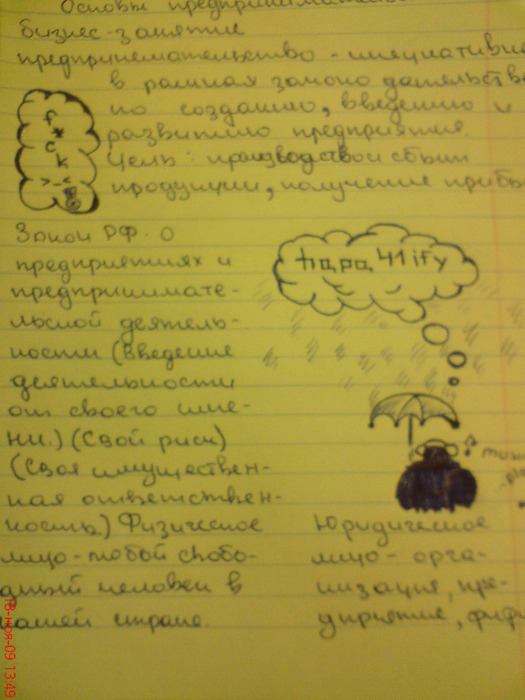 Основы предпринимательс
бизнес-занятие
предпринемательство - инициативна
в рамках закона деятельство
по созданию, введению и
развитию предприятия.
Цель: производство и сбыт
продукции, получение прибы
f
*
c
k
>_<
Закон РФ. О
предприятиях и
предпринимате-
льской деятель-
ности (Введение
деятельности
от своего име-
ни.) (Свой риск)
(Своя имуществен-
ная ответствен-
ность.) Физическое
лицо-любой свобо-
дный человек в
нашей стране.
hapa41ify
Юридическое
лицо - орга-
низация, пре-
дприятие, фир
18-ноя-09 13:49